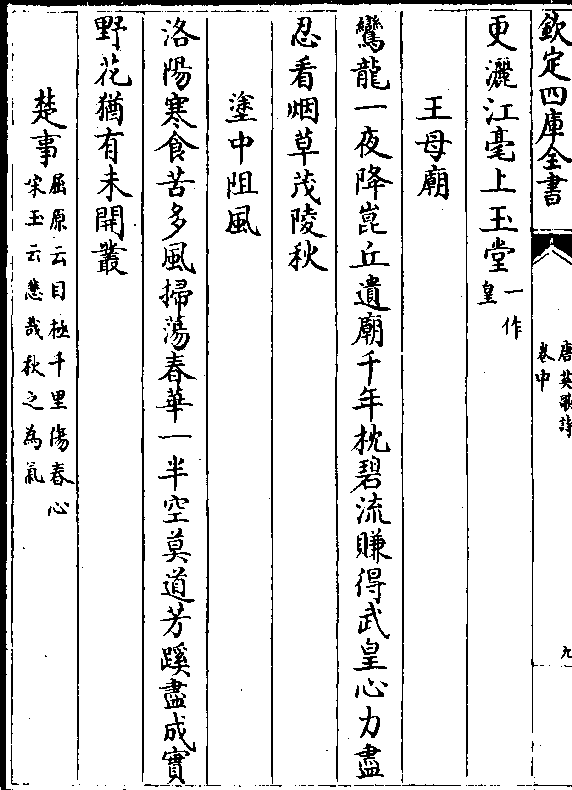 欽定四庫全書
唐英歌詩
卷中
九
更灑江毫上玉堂一作皇
王母廟
鸞龍一夜降崑丘遺廟千年枕碧流賺得武皇心力盡
忍看烟草茂陵秋
塗中阻風
洛陽寒食苦多風掃蕩春華一半空莫道芳蹊盡成實
野花猶有未開叢
楚事屈原云目極千里傷春心
宋玉云悲哉秋之為氣